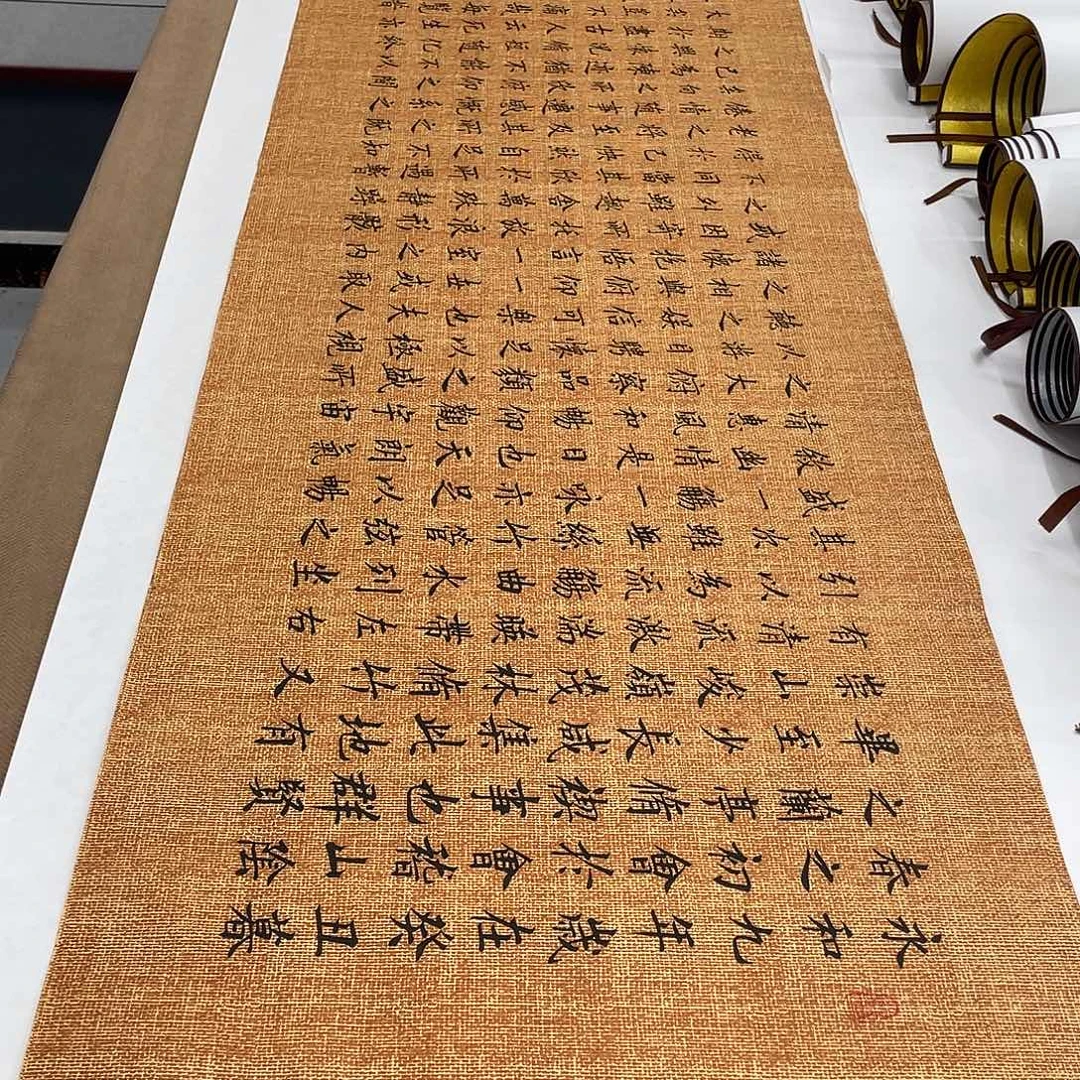 永和九年歲在癸丑暮
春之初會於會稽山陰
之蘭亭脩禊事也群賢
畢至少長咸集此地有
崇山峻嶺茂林脩竹又
有清流激湍暎帶左右
引以為流觴曲水列坐
其次雖無絲竹管弦之
盛一觴一詠亦足以暢
敘幽情是日也天朗氣
清惠風和暢仰觀宇宙
之大俯察品類之盛所
以遊目騁懷足以極視
聽之娛信可樂也夫人
之相與俯仰一世或取
諸懷抱悟言一室之內
或因寄所託放浪形骸
之外雖趣舍萬殊靜躁
不同當其欣於所遇暫
得於己快然自足不知
老之將至及其所之既
倦情隨事遷感慨係之